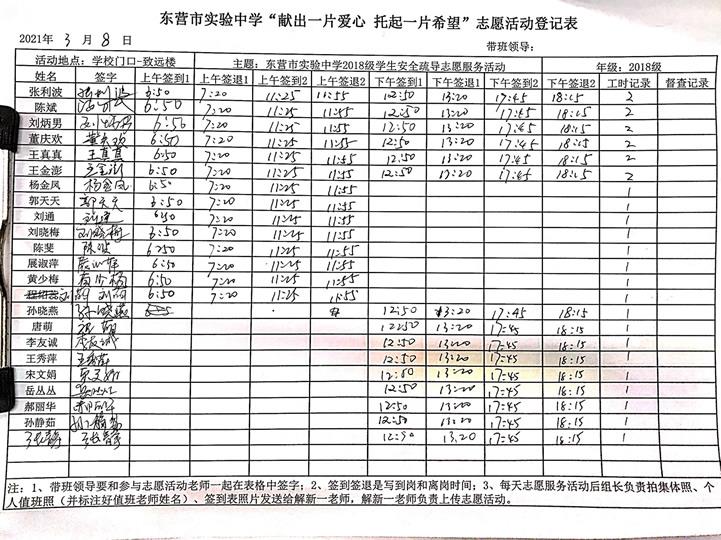 东营市实验中学“献出一片爱心 托起一片希望”志愿活动登记表
2021年 3 月 8 日 带班领导：
活动地点：学校门口-致远楼 主题：东营市实验中学2018级学生安全疏导志愿服务活动 年级：2018级
姓名 签字 上午签到1 上午签退1 上午签到2 上午签退2 下午签到1 下午签退1 下午签到2 下午签退2 工时记录 督查记录
张利波 张利波 6:50 7:20 11:25 11:55 12:50 13:20 17:45 18:15 2
陈斌 6:50 7:20 11:25 11:55 12:50 13:20 17:45 18:15 2
刘炳男 刘炳男 6:50 7:20 11:25 11:55 12:50 13:20 17:45 18:15 2
董庆欢 董庆欢 6:50 7:20 11:25 11:55 12:50 13:20 17:45 18:15 2
王真真 王真真 6:50 7:20 11:25 11:45 12:50 13:20 17:45 18:15 2
王金澍 王金澍 6:50 7:20 11:25 11:55 12:50 13:20 17:45 18:15 2
杨金凤 杨金凤 6:50 7:20 11:25 11:55 1
郭天天 郭天天 6:50 7:20 11:25 11:55 1
刘通 6:50 7:20 11:25 11:55 1
刘晓梅 刘晓梅 6:50 7:20 11:25 11:55 1
陈斐 陈斐 6:50 7:20 11:25 11:55 1
展淑萍 6:50 7:20 11:25 11:55 1
黄少梅 黄少梅 6:50 7:20 11:25 11:55 1
刘丽 6:50 7:20 11:25 11:55 1
孙晓燕 孙晓燕 12:50 13:20 17:45 18:15 1
唐萌 12:50 13:20 17:45 18:15 1
李友诚 李友诚 12:50 13:20 17:45 18:15 1
王秀萍 王秀萍 12:50 13:20 17:45 18:15 1
宋文娟 宋文娟 12:50 13:20 17:45 18:15 1
岳丛丛 12:50 13:20 17:45 18:15 1
郝丽华 12:50 13:20 17:45 18:15 1
孙静茹 12:50 13:20 17:45 18:15 1
张静 张静 12:50 13:20 17:45 18:15 1
注：1、带班领导要和参与志愿活动老师一起在表格中签字；2、签到签退是写到岗和离岗时间；3、每天志愿服务活动后组长负责拍集体照、个
人值班照（并标注好值班老师姓名）、签到表照片发送给解新一老师，解新一老师负责上传志愿活动。